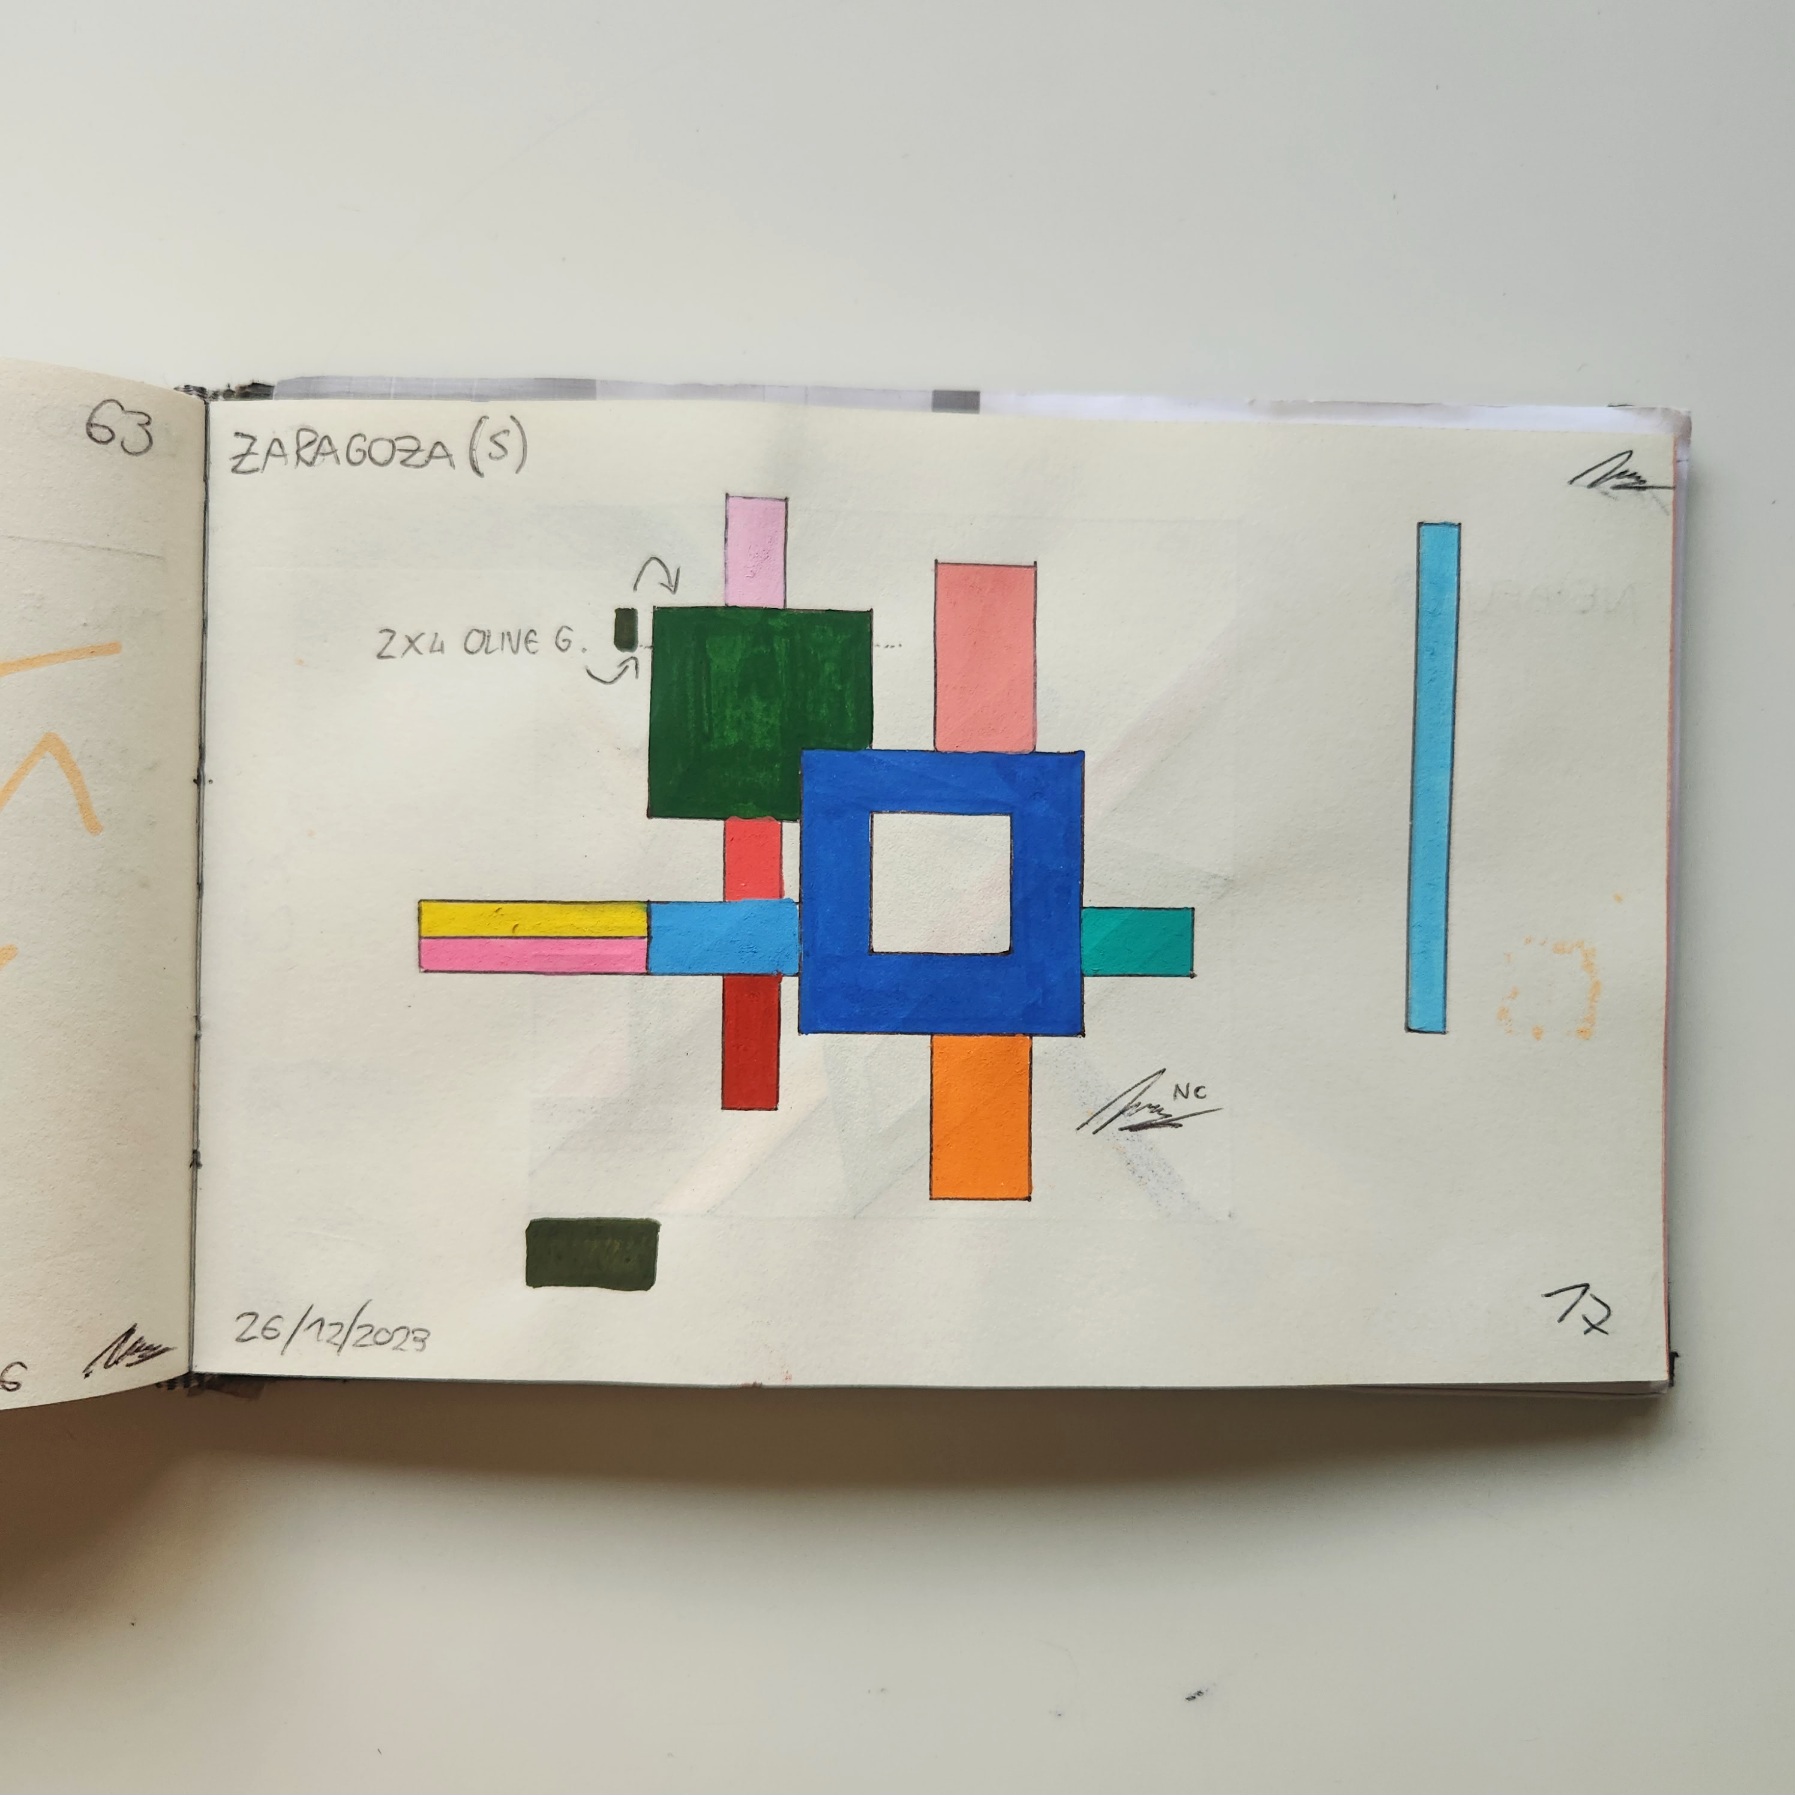 63
ZARAGOZA (S)
2X4 OLIVE G.
NC
26/12/2023
17
6